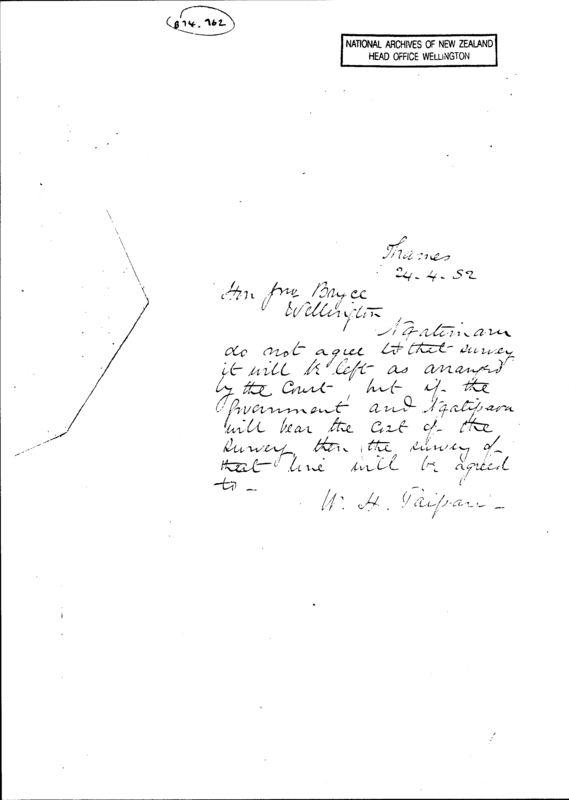 874.762
NATIONAL ARCHIVES OF NEW ZEALAND
HEAD OFFICE WELLINGTON
Thames
24-4-82
Hon Jno Bryce
Wellington
Ngatimaru
do not agree to that survey
it will be left as arranged
by the Court, but if the
Government and Ngatipaoa
will bear the cost of the
survey then the survey of
that line will be agreed
to -
W. H. Taipari -